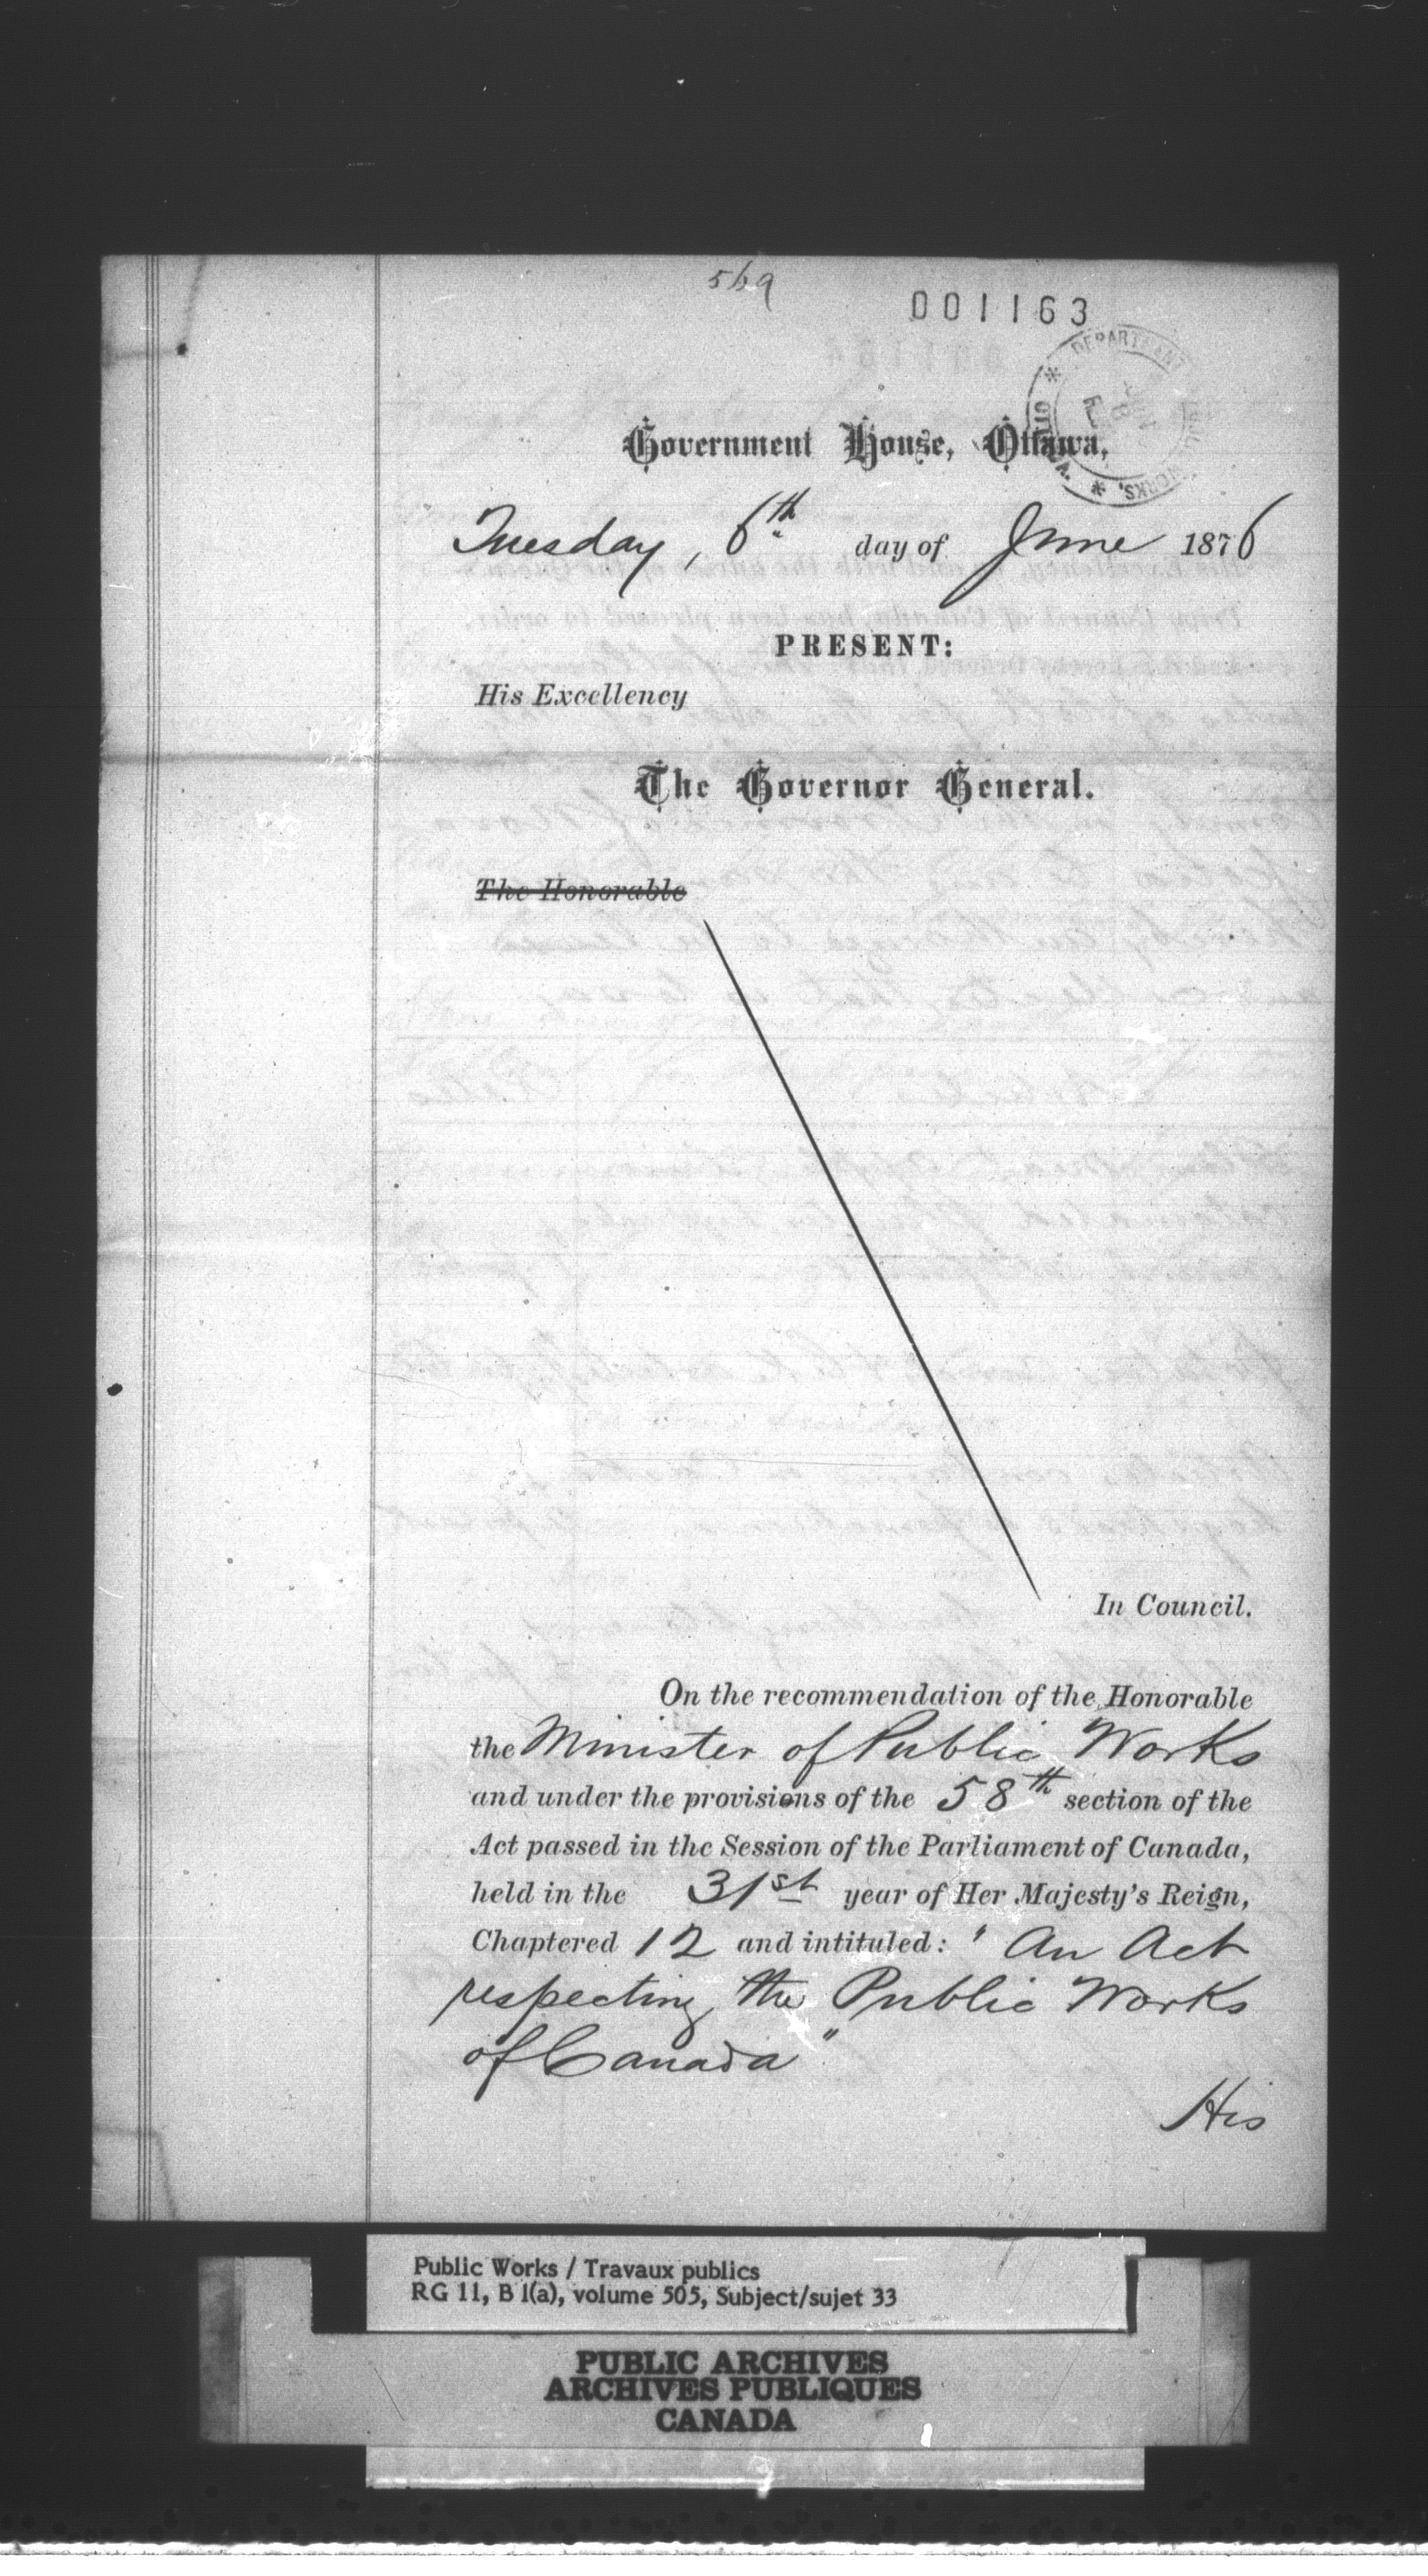 569
001163
DEPARTMENT PUBLIC WORKS, * OTTAWA. *
Government House, Ottawa,
Tuesday, 6th day of June 1876
PRESENT:
His Excellency
The Governor General.
The Honorable
In Council.
On the recommendation of the Honorable
the Minister of Public Works
and under the provisions of the 58th section of the
Act passed in the Session of the Parliament of Canada,
held in the 31st year of Her Majesty's Reign,
Chaptered 12 and intituled: "An Act
respecting the Public Works
of Canada"
His
Public Works / Travaux publics
RG 11, B 1(a), volume 505, Subject/sujet 33
PUBLIC ARCHIVES
ARCHIVES PUBLIQUES
CANADA